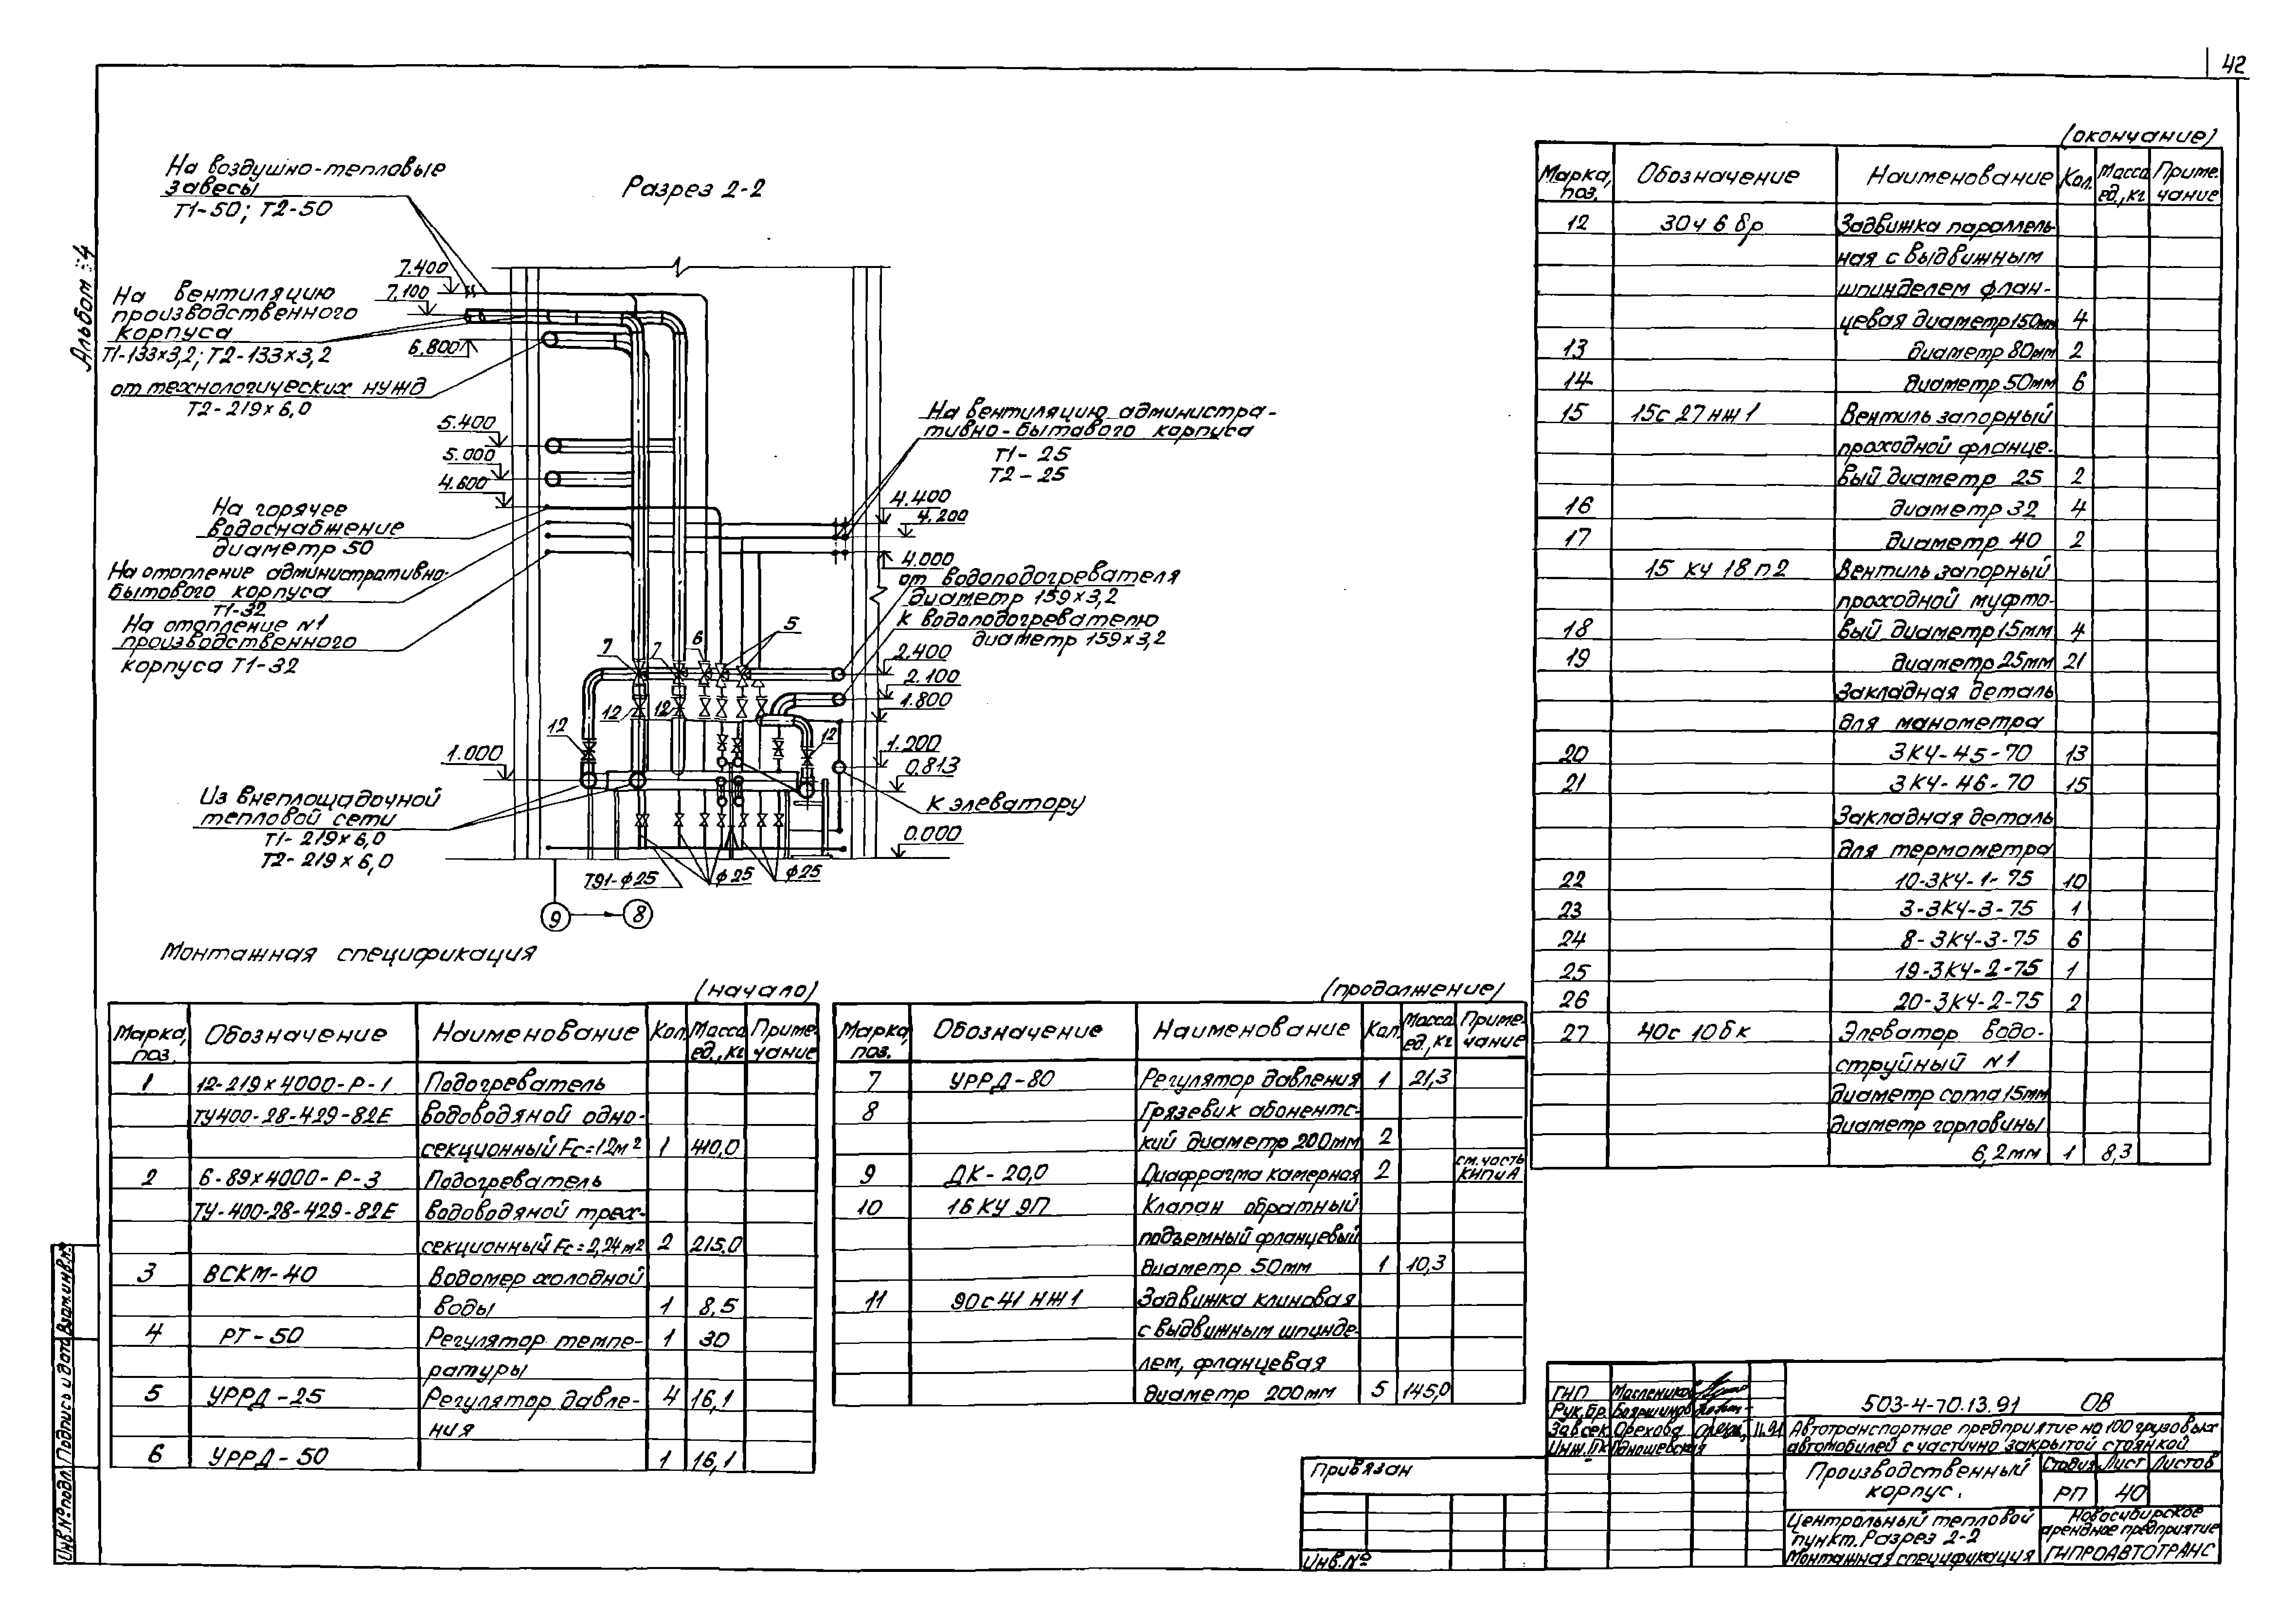 42
Альбом 4
На воздушно-тепловые
завесы
Т1-50; Т2-50
Разрез 2-2
7.400
7.100
На вентиляцию
производственного
корпуса
Т1-133×3,2; Т2-133×3,2
6.800
от технологических нужд
Т2-219×6,0
5.400
5.000
4.600
На горячее
водоснабжение
диаметр 50
На отопление административно-
бытового корпуса
Т1-32
На отопление N1
производственного
корпуса Т1-32
На вентиляцию администра-
тивно-бытового корпуса
Т1-25
Т2-25
4.400
4.200
4.000
от водоподогревателя
диаметр 159×3,2
к водоподогревателю
диаметр 159×3,2
2.400
2.100
1.800
1.200
0.813
К элеватору
0.000
7 7 6 5
12 12 12 12
1.000
Из внеплощадочной
тепловой сети
Т1-219×6,0
Т2-219×6,0
Т91-ф25 ф25 ф25
9 8
Монтажная спецификация
(начало)
Марка, поз. Обозначение Наименование Кол. Масса ед.,кг Приме-чание
1 12-219×4000-Р-1 Подогреватель
ТУ400-28-429-82Е водоводяной одно-
секционный Fc=12м² 1 410,0
2 6-89×4000-Р-3 Подогреватель
ТУ-400-28-429-82Е водоводяной трех-
секционный Fc=2,24м² 2 215,0
3 ВСКМ-40 Водомер холодной
воды 1 8,5
4 РТ-50 Регулятор темпе- 1 30
ратуры
5 УРРД-25 Регулятор давле- 4 16,1
ния
6 УРРД-50 1 16,1
(продолжение)
Марка, поз. Обозначение Наименование Кол. Масса ед.,кг Приме-чание
7 УРРД-80 Регулятор давления 1 21,3
8 Грязевик абонентс-
кий диаметр 200мм 2
9 ДК-20,0 Диафрагма камерная 2 см.часть КИПиА
10 16 КЧ 9П Клапан обратный
подъемный фланцевый
диаметр 50мм 1 10,3
11 90с41 НЖ1 Задвижка клиновая
с выдвижным шпинде-
лем, фланцевая
диаметр 200мм 5 145,0
(окончание)
Марка, поз. Обозначение Наименование Кол. Масса ед.,кг Приме-чание
12 30ч 6 бр Задвижка параллель-
ная с выдвижным
шпинделем флан-
цевая диаметр 150мм 4
13 диаметр 80мм 2
14 диаметр 50мм 6
15 15с 27нж 1 Вентиль запорный
проходной фланце-
вый диаметр 25 2
16 диаметр 32 4
17 диаметр 40 2
15 кч 18 п2 Вентиль запорный
проходной муфто-
18 вый диаметр 15мм 4
19 диаметр 25мм 21
Закладная деталь
для манометра
20 ЗКЧ-45-70 13
21 ЗКЧ-46-70 15
Закладная деталь
для термометра
22 10-ЗКЧ-1-75 10
23 3-ЗКЧ-3-75 1
24 8-ЗКЧ-3-75 6
25 19-ЗКЧ-2-75 1
26 20-ЗКЧ-2-75 2
27 40с 10бк Элеватор водо-
струйный N1
диаметр сопла 15мм
диаметр горловины
6,2мм 1 8,3
ГИП Маслеников
Рук.бр. Бояршинов
Зав сек Орехова 11.91
Инж.IIк
503-4-70.13.91 ОВ
Автотранспортное предприятие на 100 грузовых
автомобилей с частично закрытой стоянкой
Производственный
корпус.
Стадия Лист Листов
РП 40
Центральный тепловой
пункт. Разрез 2-2
Монтажная спецификация
Новосибирское
арендное предприятие
ГИПРОАВТОТРАНС
Привязан
Инв.№
Инв.№ подл. Подпись и дата Взам.инв.№